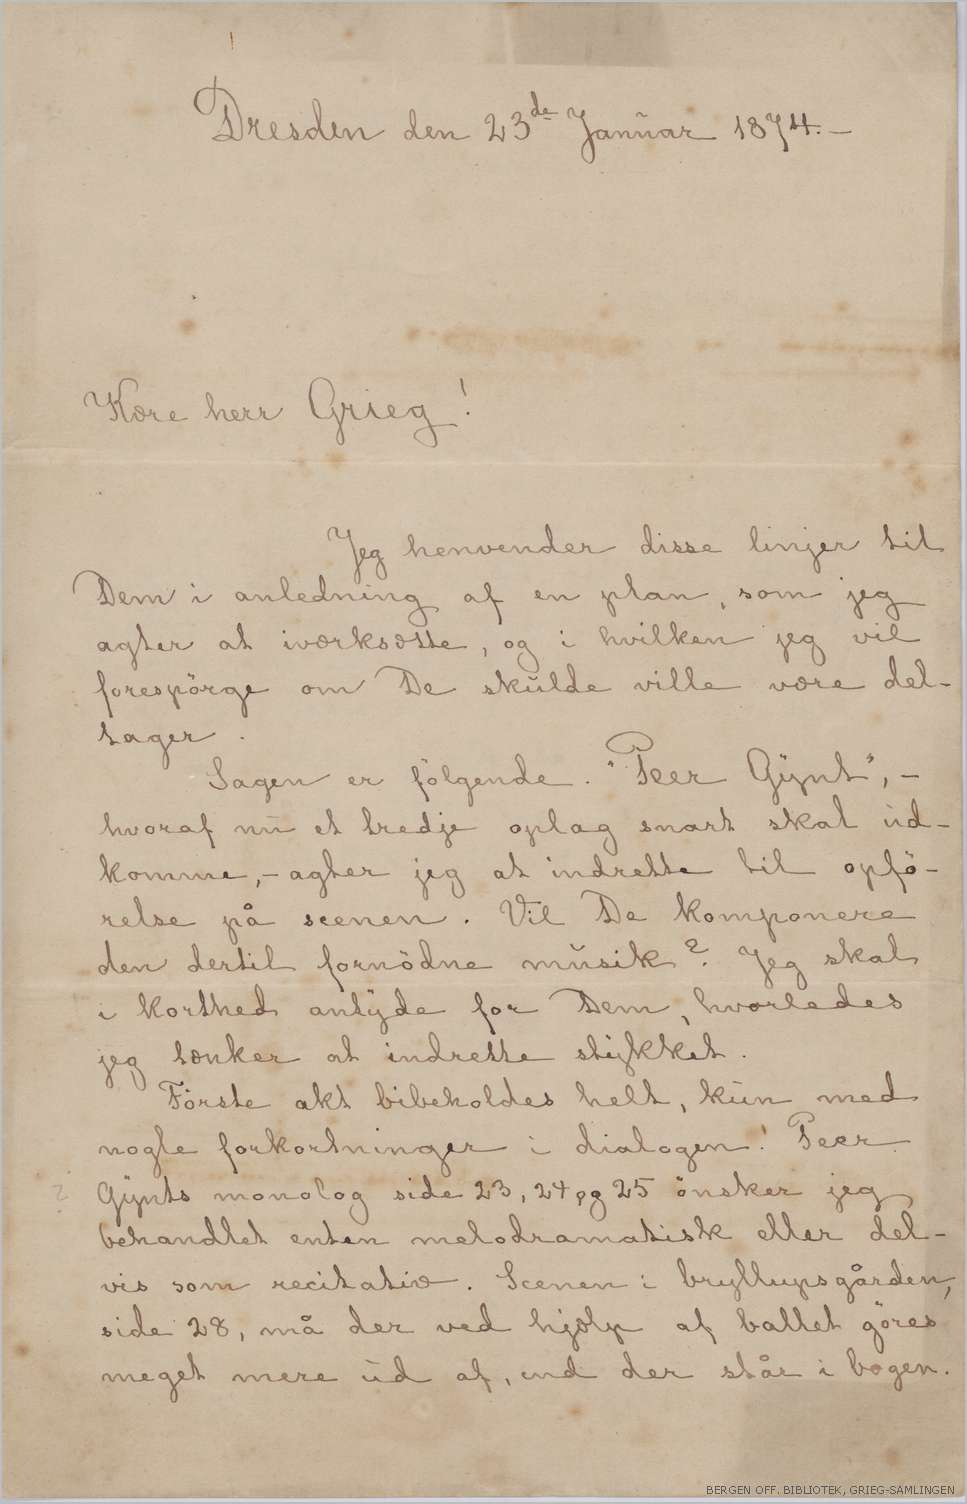 Dresden den 23de Januar 1874. –
Kære herr Grieg!
Jeg henvender disse linjer til
Dem i anledning af en plan, som jeg
agter at iværksætte, og i hvilken jeg vil
forespörge om De skulde ville være del-
tager.
Sagen er fölgende. "Peer Gynt", –
hvoraf nu et tredje oplag snart skal ud-
komme, – agter jeg at indrette til opfö-
relse på scenen. Vil De komponere
den dertil fornödne musik? Jeg skal
i korthed antyde for Dem, hvorledes
jeg tænker at indrette stykket.
Förste akt bibeholdes helt, kun med
nogle forkortninger i dialogen. Peer
Gynts monolog side 23, 24 og 25 önsker jeg
behandlet enten melodramatisk eller del-
vis som recitativ. Scenen i bryllupsgården,
side 28, må der ved hjælp af ballet göres
meget mere ud af, end der står i bogen.
BERGEN OFF. BIBLIOTEK, GRIEG-SAMLINGEN